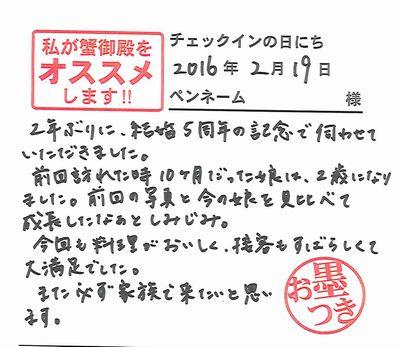 私が蟹御殿を
オススメ
します!!
チェックインの日にち
2016年 2月 19日
ペンネーム 様
2年ぶりに、結婚5周年の記念で伺わせて
いただきました。
前回訪れた時10ヶ月だった娘は、2歳になり
ました。前回の写真と今の娘を見比べて
成長したなぁとしみじみ。
今回も料理がおいしく、接客もすばらしくて
大満足でした。
また必ず家族で来たいと思い
ます。
お墨
つき